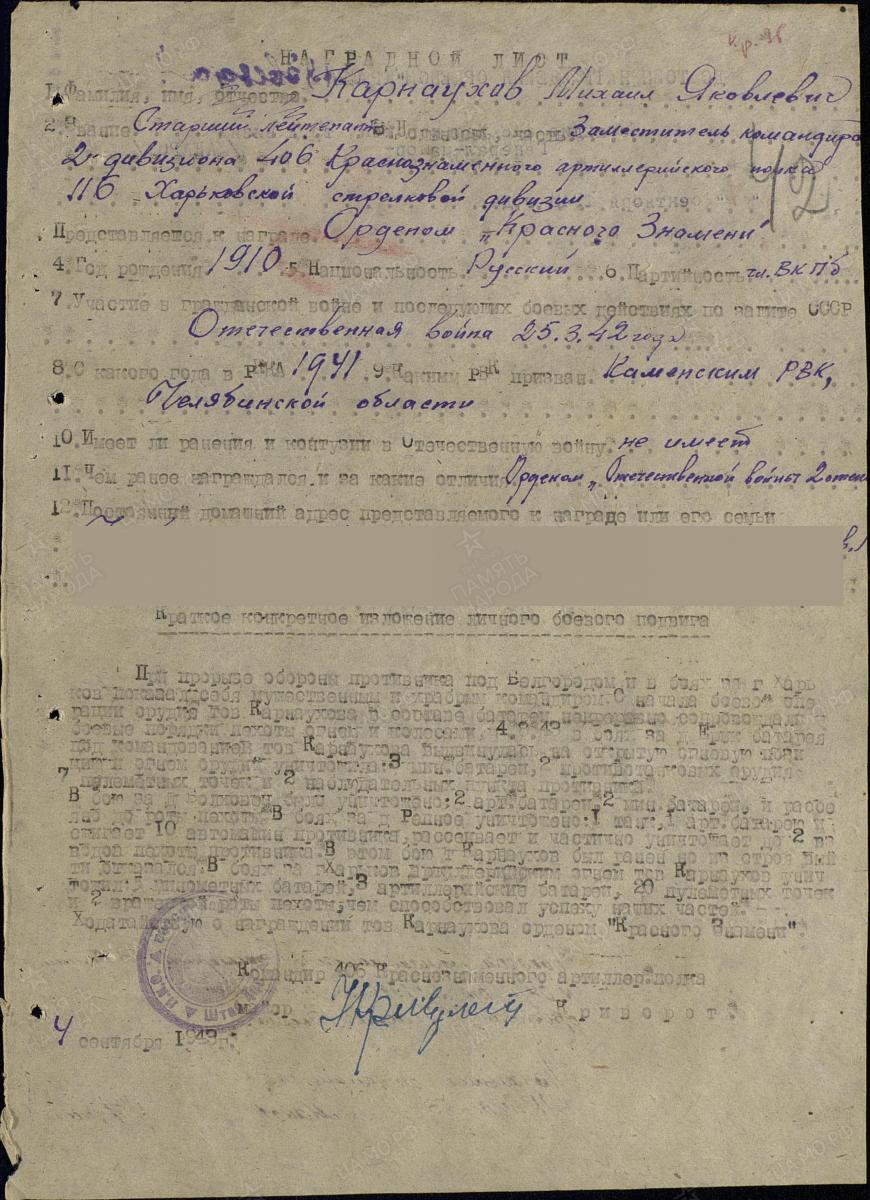 НАГРАДНОЙ ЛИСТ
1. Фамилия, имя, отчество. Карнаухов Михаил Яковлевич
2. Звание Старший лейтенант Должность, часть Заместитель командира
2 дивизиона 406 Краснознаменного артиллерийского полка
116 Харьковской стрелковой дивизии
Представляется к награде. Орденом „Красного Знамени"
4. Год рождения 1910 5. Национальность Русский 6. Партийность чл. ВКПб
7. Участие в гражданской войне и последующих боевых действиях по защите СССР
Отечественная война 25.3.42 года
8. С какого года в РККА 1941 9. Каким РВК призван. Каменским РВК,
Челябинской области
10. Имеет ли ранения и контузии в Отечественную войну. не имеет
11. Чем ранее награждался и за какие отличия Орденом „Отечественной войны 2 степ
12. Постоянный домашний адрес представляемого к награде или его семьи
Краткое конкретное изложение личного боевого подвига
При прорыве обороны противника под Белгородом и в боях за г Харь
ков показал себя мужественным и храбрым командиром. С начала боевой опе
рации орудия тов Карнаухова в составе батареи непрерывно сопровождали
боевые порядки пехоты огнем и колесами. в боях за д батарея
под командованием тов Карнаухова выдвинулась на открытую огневую пози
цию и огнем орудий уничтожила: 3 мин. батареи, 2 противотанковых орудия
7 пулеметных точек и 2 наблюдательных пункта противника.
В бою за д было уничтожено: 2 арт. батареи, 2 мин. батареи и рассе
яно до роты пехоты. В боях за д Репное уничтожено: 1 танк, 1 арт. батарею и
сжигает 10 автомашин противника, рассеивает и частично уничтожает до 2 вз
водов пехоты противника. В этом бою т Карнаухов был ранен но из строя вый
ти отказался. В боях за г Харьков артиллерийским огнем тов Карнаухов унич
тожил 3 минометных батареи, 3 артиллерийские батареи, 20 пулеметных точек
и 2 вражеской роты пехоты, чем способствовал успеху наших частей. -
Ходатайствую о награждении тов Карнаухова орденом "Красного Знамени".
Командир 406 Краснознаменного артиллер. полка
майор Криворот.
4 сентября 1943 г.
402
ПАМЯТЬ НАРОДА
ЦАМО.РФ